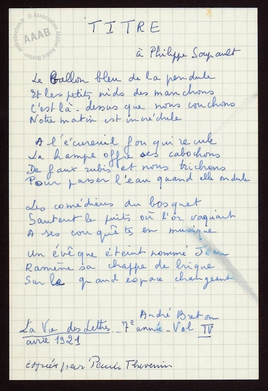 TITRE
à Philippe Soupault
Le Ballon bleu de la pendule
Et les petits nids des manchons
C'est là-dessus que nous couchons
Notre matin est incrédule
A l'écureuil fou qui recule
La hampe offre ses cabochons
De faux rubis et nous trichons
Pour passer l'eau quand elle ondule
Les comédiens du bosquet
Sautent le puits où l'or vaguait
A ses conquêts en musique
Un évêque éteint nommé Jean
Ramène sa chappe de brique
Sur le grand espace changeant
André Breton
La Vie des Lettres - 7e année - Vol IV
avril 1921
copiés par Paule Thévenin
AAAB